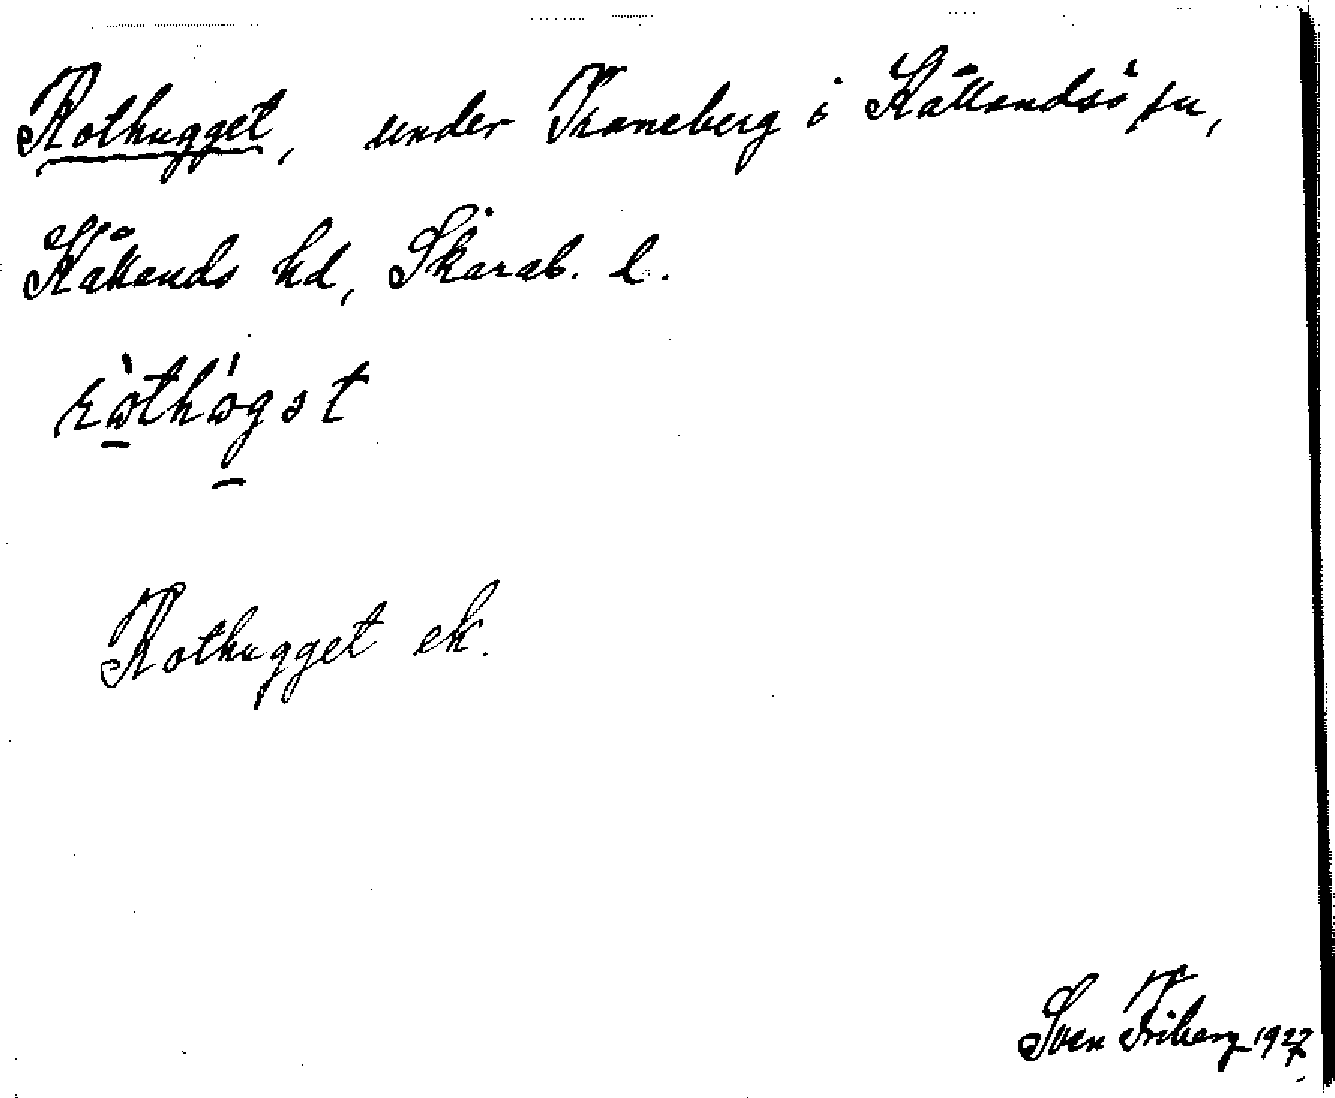 Rothugget, under Traneberg i Kållandsö sn,
Kållands hd, Skarab. l.
Rothugget ek.
Sven Friberg 1927